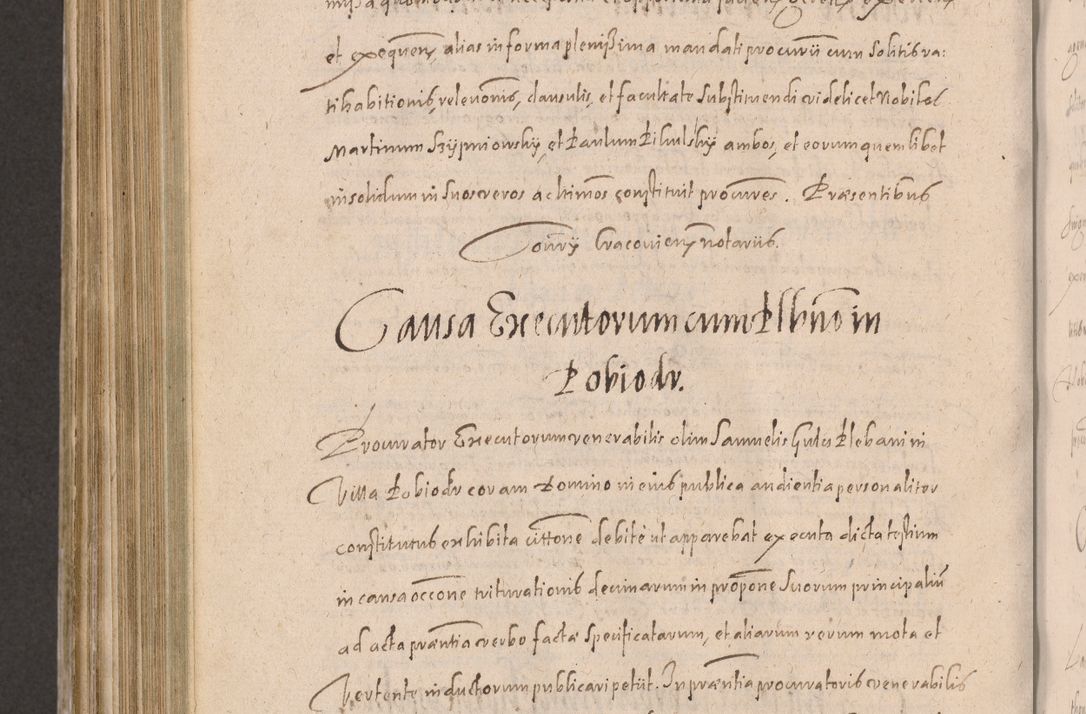 et exequens alias in forma plenissima mandati procurij cum solitis ra:
tihabitionis, relevonis, clausulis, et facultate substituendi videlicet Nobiles
Martinum Szijmiowskij, et Paulum Pikulskij ambos, et eorum quemlibet
in solidum in suos veros ac ltimos constituit procures. Præsentibus
Consrij Cracoviens notariis.
Causa Executorum cum Plbno in
Pobiodr.
Procurator Executorum venerabilis olim Samuelis Plebani in
Villa Pobiodr coram Domino in eius publica audientia personaliter
constitutus exhibita cittone debitè ut apparebat executa dicta testium
in causa occone triturationis decimarum in propone suorum principaliu
ad acta præntia verbo factæ specificatarum, et aliarum rerum mota et
Vertente inductorum publicari petiit. In præntia procuratoris venerabilis